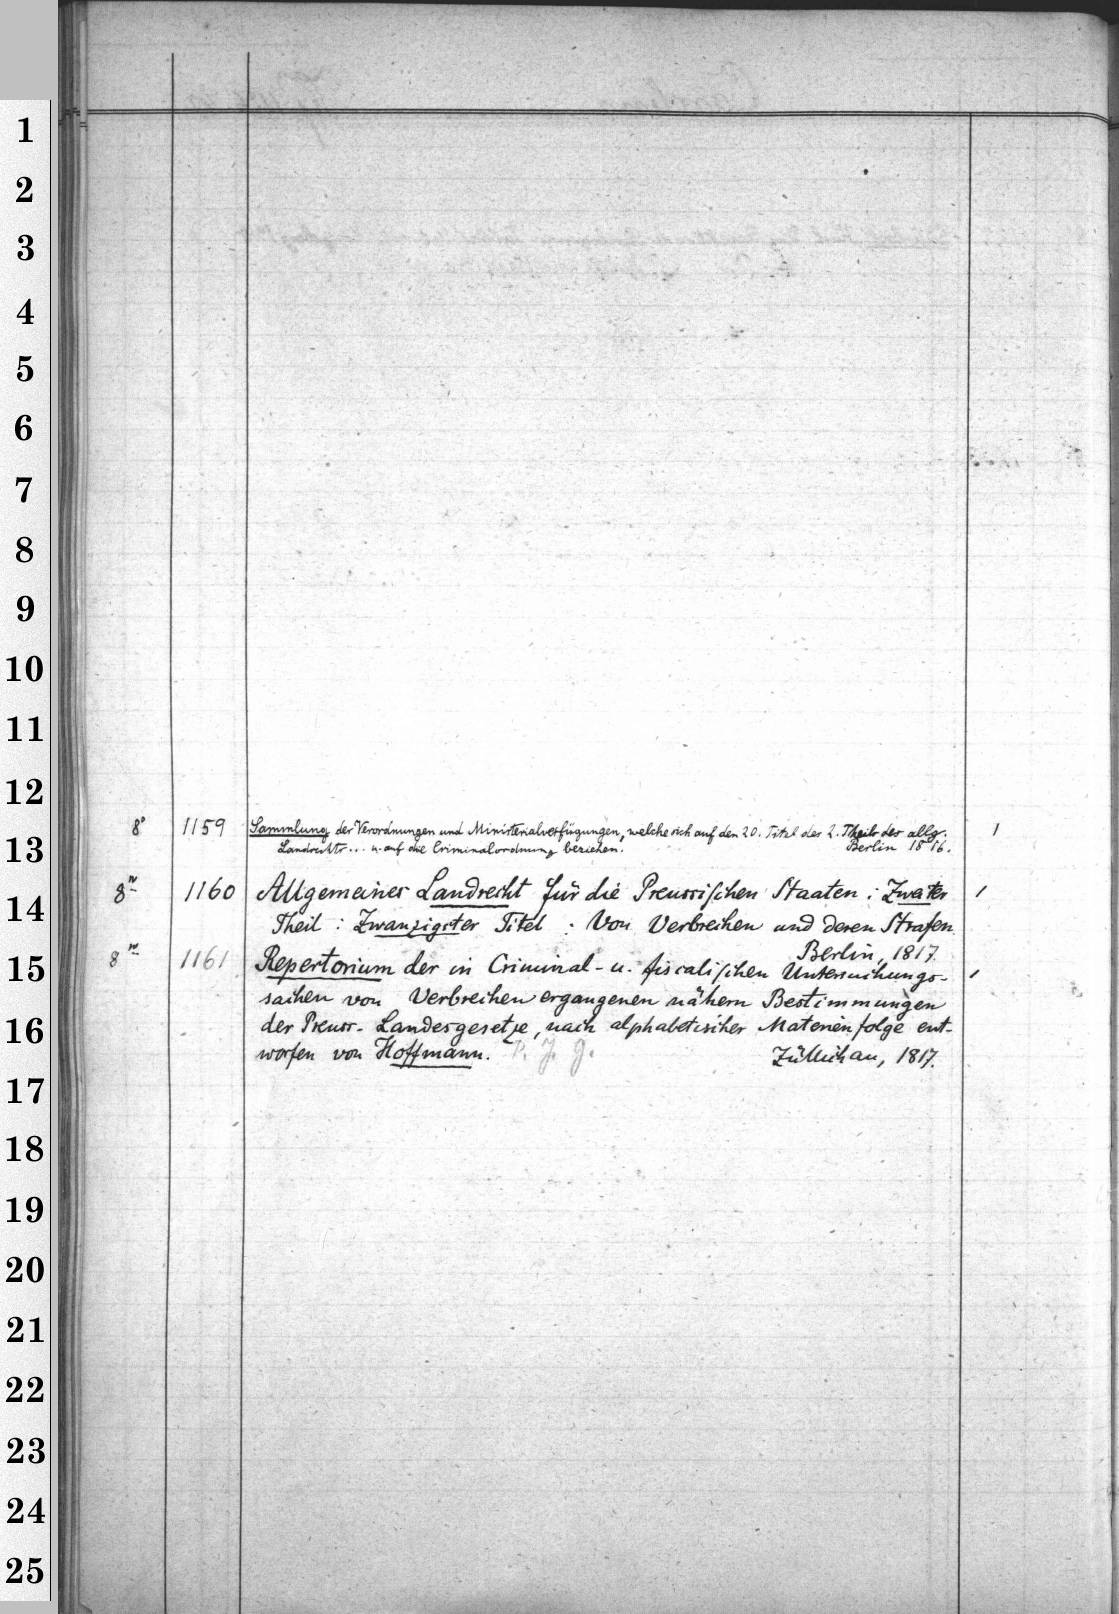 1
2
3
4
5
6
7
8
9
10
11
12
13
14
15
16
17
18
19
20
21
22
23
24
25
8° 1159 Sammlung der Verordnungen und Ministerialverfügungen, welche sich auf den 20. Titel des 2. Theils des allg. 1
Landrechts... u. auf die Criminalordnung beziehen. Berlin 1816.
8° 1160 Allgemeines Landrecht für die Preussischen Staaten: Zweiter 1
Theil: Zwanzigster Titel: Von Verbrechen und deren Strafen
Berlin, 1817.
8° 1161 Repertorium der in Criminal- u. fiscalischen Untersuchungs- 1
sachen von Verbrechen ergangenen nähern Bestimmungen
der Preuss. Landesgesetze, nach alphabetischer Materienfolge ent-
worfen von Hoffmann. P. J. G. Züllichau, 1817.